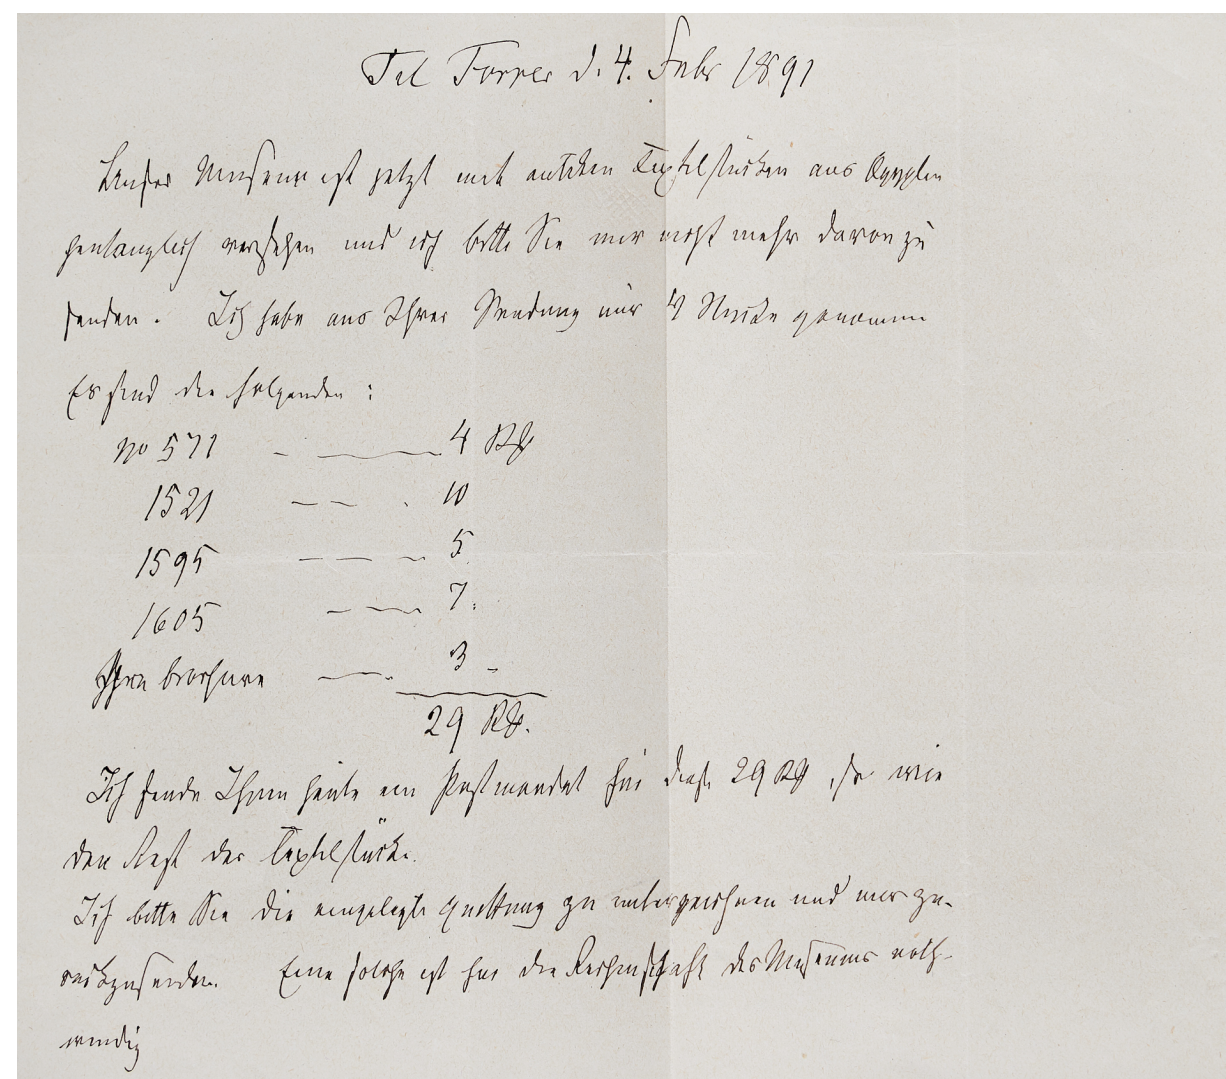 Tit Forrer d. 4. Febr 1891
Unser Museum ist jetzt mit antiken Textilstücken aus Ägypten
hinlänglich versehen und ich bitte Sie mir nicht mehr davon zu
senden. Ich habe aus Ihrer Sendung nur 4 Stücke genommen
Es sind die folgenden:
no 571 4 RM
1521 10
1595 5
1605 7.
Ihre brochure 3
29 RM.
Ich sende Ihnen heute ein Postmandat für diese 29 RM, so wie
den Rest der Textilstücke.
Ich bitte Sie die eingelegte Quittung zu unterzeichnen und mir zu-
rückzusenden. Eine solche ist für die Rechenschaft des Museums noth-
wendig